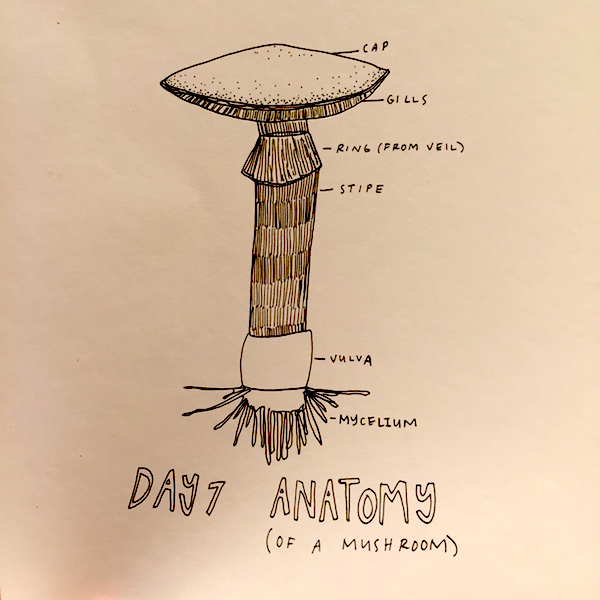 CAP
GILLS
RING (FROM VEIL)
STIPE
VULVA
MYCELIUM
DAY 7 ANATOMY
(OF A MUSHROOM)